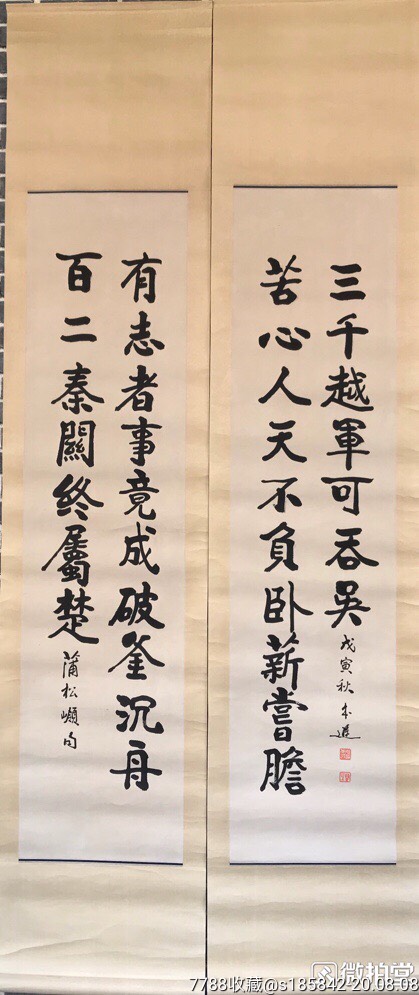 有志者事竟成破釜沉舟
百二秦關終屬楚
蒲松句
苦心人天不負卧薪嘗膽
三千越軍可吞吳
戊寅秋
微拍堂
7788收藏@s185842 20.08.08